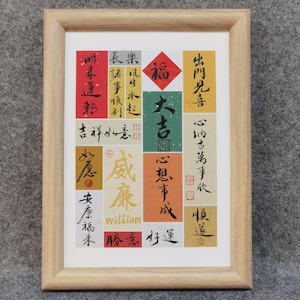 時来運轉
長樂
諸事順利
風生水起
福
出門見喜
大吉
吉祥如意
心納吉萬事欣
如愿
威廉
william
心想事成
安康福来
順遂
勝意
好運